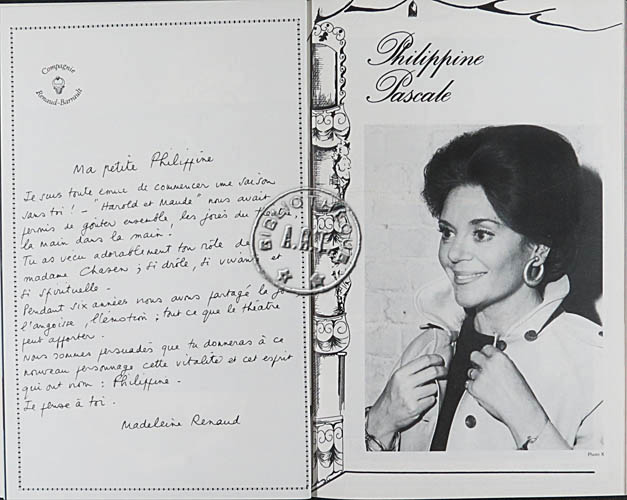 Compagnie
Renaud-Barrault
Ma petite Philippine
Je suis toute émue de commencer une saison
sans toi ! - "Harold et Maude" nous avait
permis de goûter ensemble les joies du théâtre,
la main dans la main !
Tu as vécu adorablement ton rôle de
madame Chasen ; si drôle, si vivante et
si spirituelle -
Pendant six années nous avons partagé la joie
l'angoisse, l'émotion ; tout ce que le théâtre
peut apporter -
Nous sommes persuadés que tu donneras à ce
nouveau personnage cette vitalité et cet esprit
qui ont nom : Philippine -
Je pense à toi -
Madeleine Renaud
Philippine
Pascale
Photo X